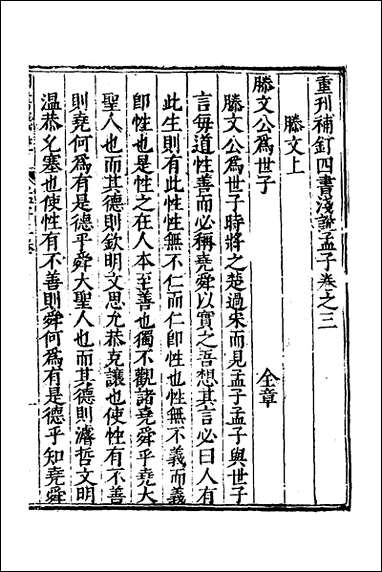 重刊補訂四書淺說孟子卷之三
滕文上
滕文公為世子 全章
滕文公為世子時將之楚過宋而見孟子孟子與世子
言每道性善而必稱堯舜以實之吾想其言必曰人有
此生則有此性性無不仁而仁即性也性無不義而義
即性也是性之在人本至善也獨不觀諸堯舜乎堯大
聖人也而其德則欽明文思允恭克讓也使性有不善
則堯何為有是德乎舜大聖人也而其德則濬哲文明
溫恭允塞也使性有不善則舜何為有是德乎知堯舜